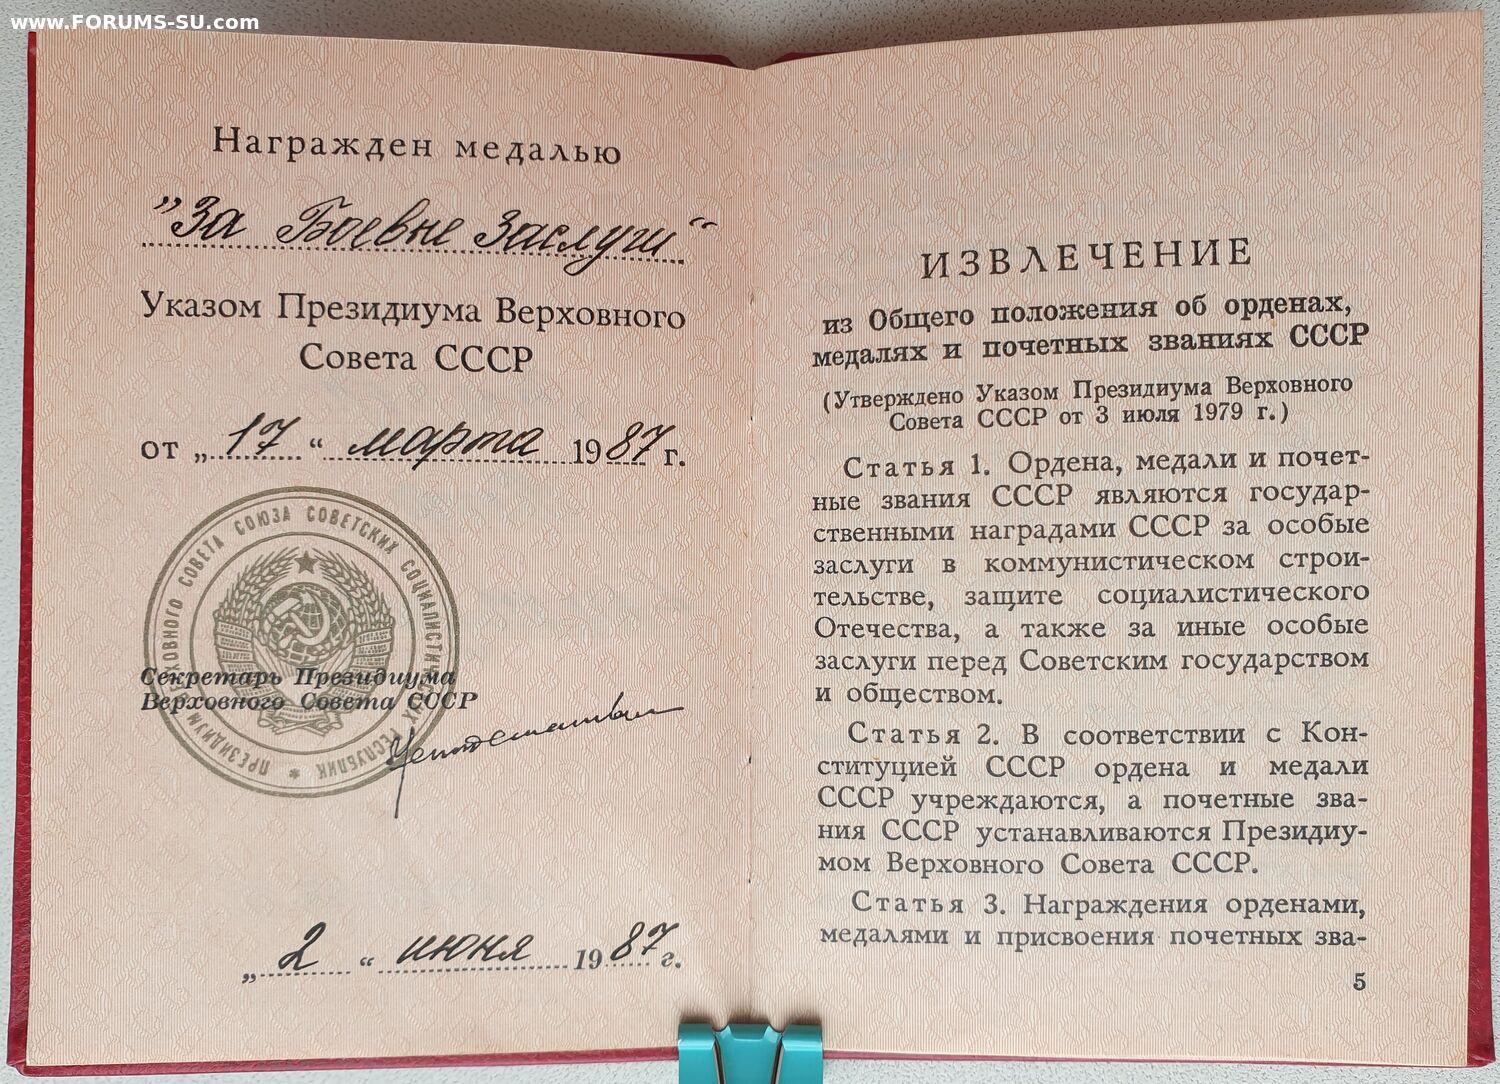 www.FORUMS-SU.com
Награжден медалью
"За Боевые заслуги"
Указом Президиума Верховного
Совета СССР
от „17“ марта 1987 г.
ПРЕЗИДИУМ ВЕРХОВНОГО СОВЕТА СОЮЗА СОВЕТСКИХ СОЦИАЛИСТИЧЕСКИХ РЕСПУБЛИК *
Секретарь Президиума
Верховного Совета СССР
„2“ июня 1987 г.
ИЗВЛЕЧЕНИЕ
из Общего положения об орденах,
медалях и почетных званиях СССР
(Утверждено Указом Президиума Верховного
Совета СССР от 3 июля 1979 г.)
Статья 1. Ордена, медали и почет-
ные звания СССР являются государ-
ственными наградами СССР за особые
заслуги в коммунистическом строи-
тельстве, защите социалистического
Отечества, а также за иные особые
заслуги перед Советским государством
и обществом.
Статья 2. В соответствии с Кон-
ституцией СССР ордена и медали
СССР учреждаются, а почетные зва-
ния СССР устанавливаются Президиу-
мом Верховного Совета СССР.
Статья 3. Награждения орденами,
медалями и присвоения почетных зва-
5